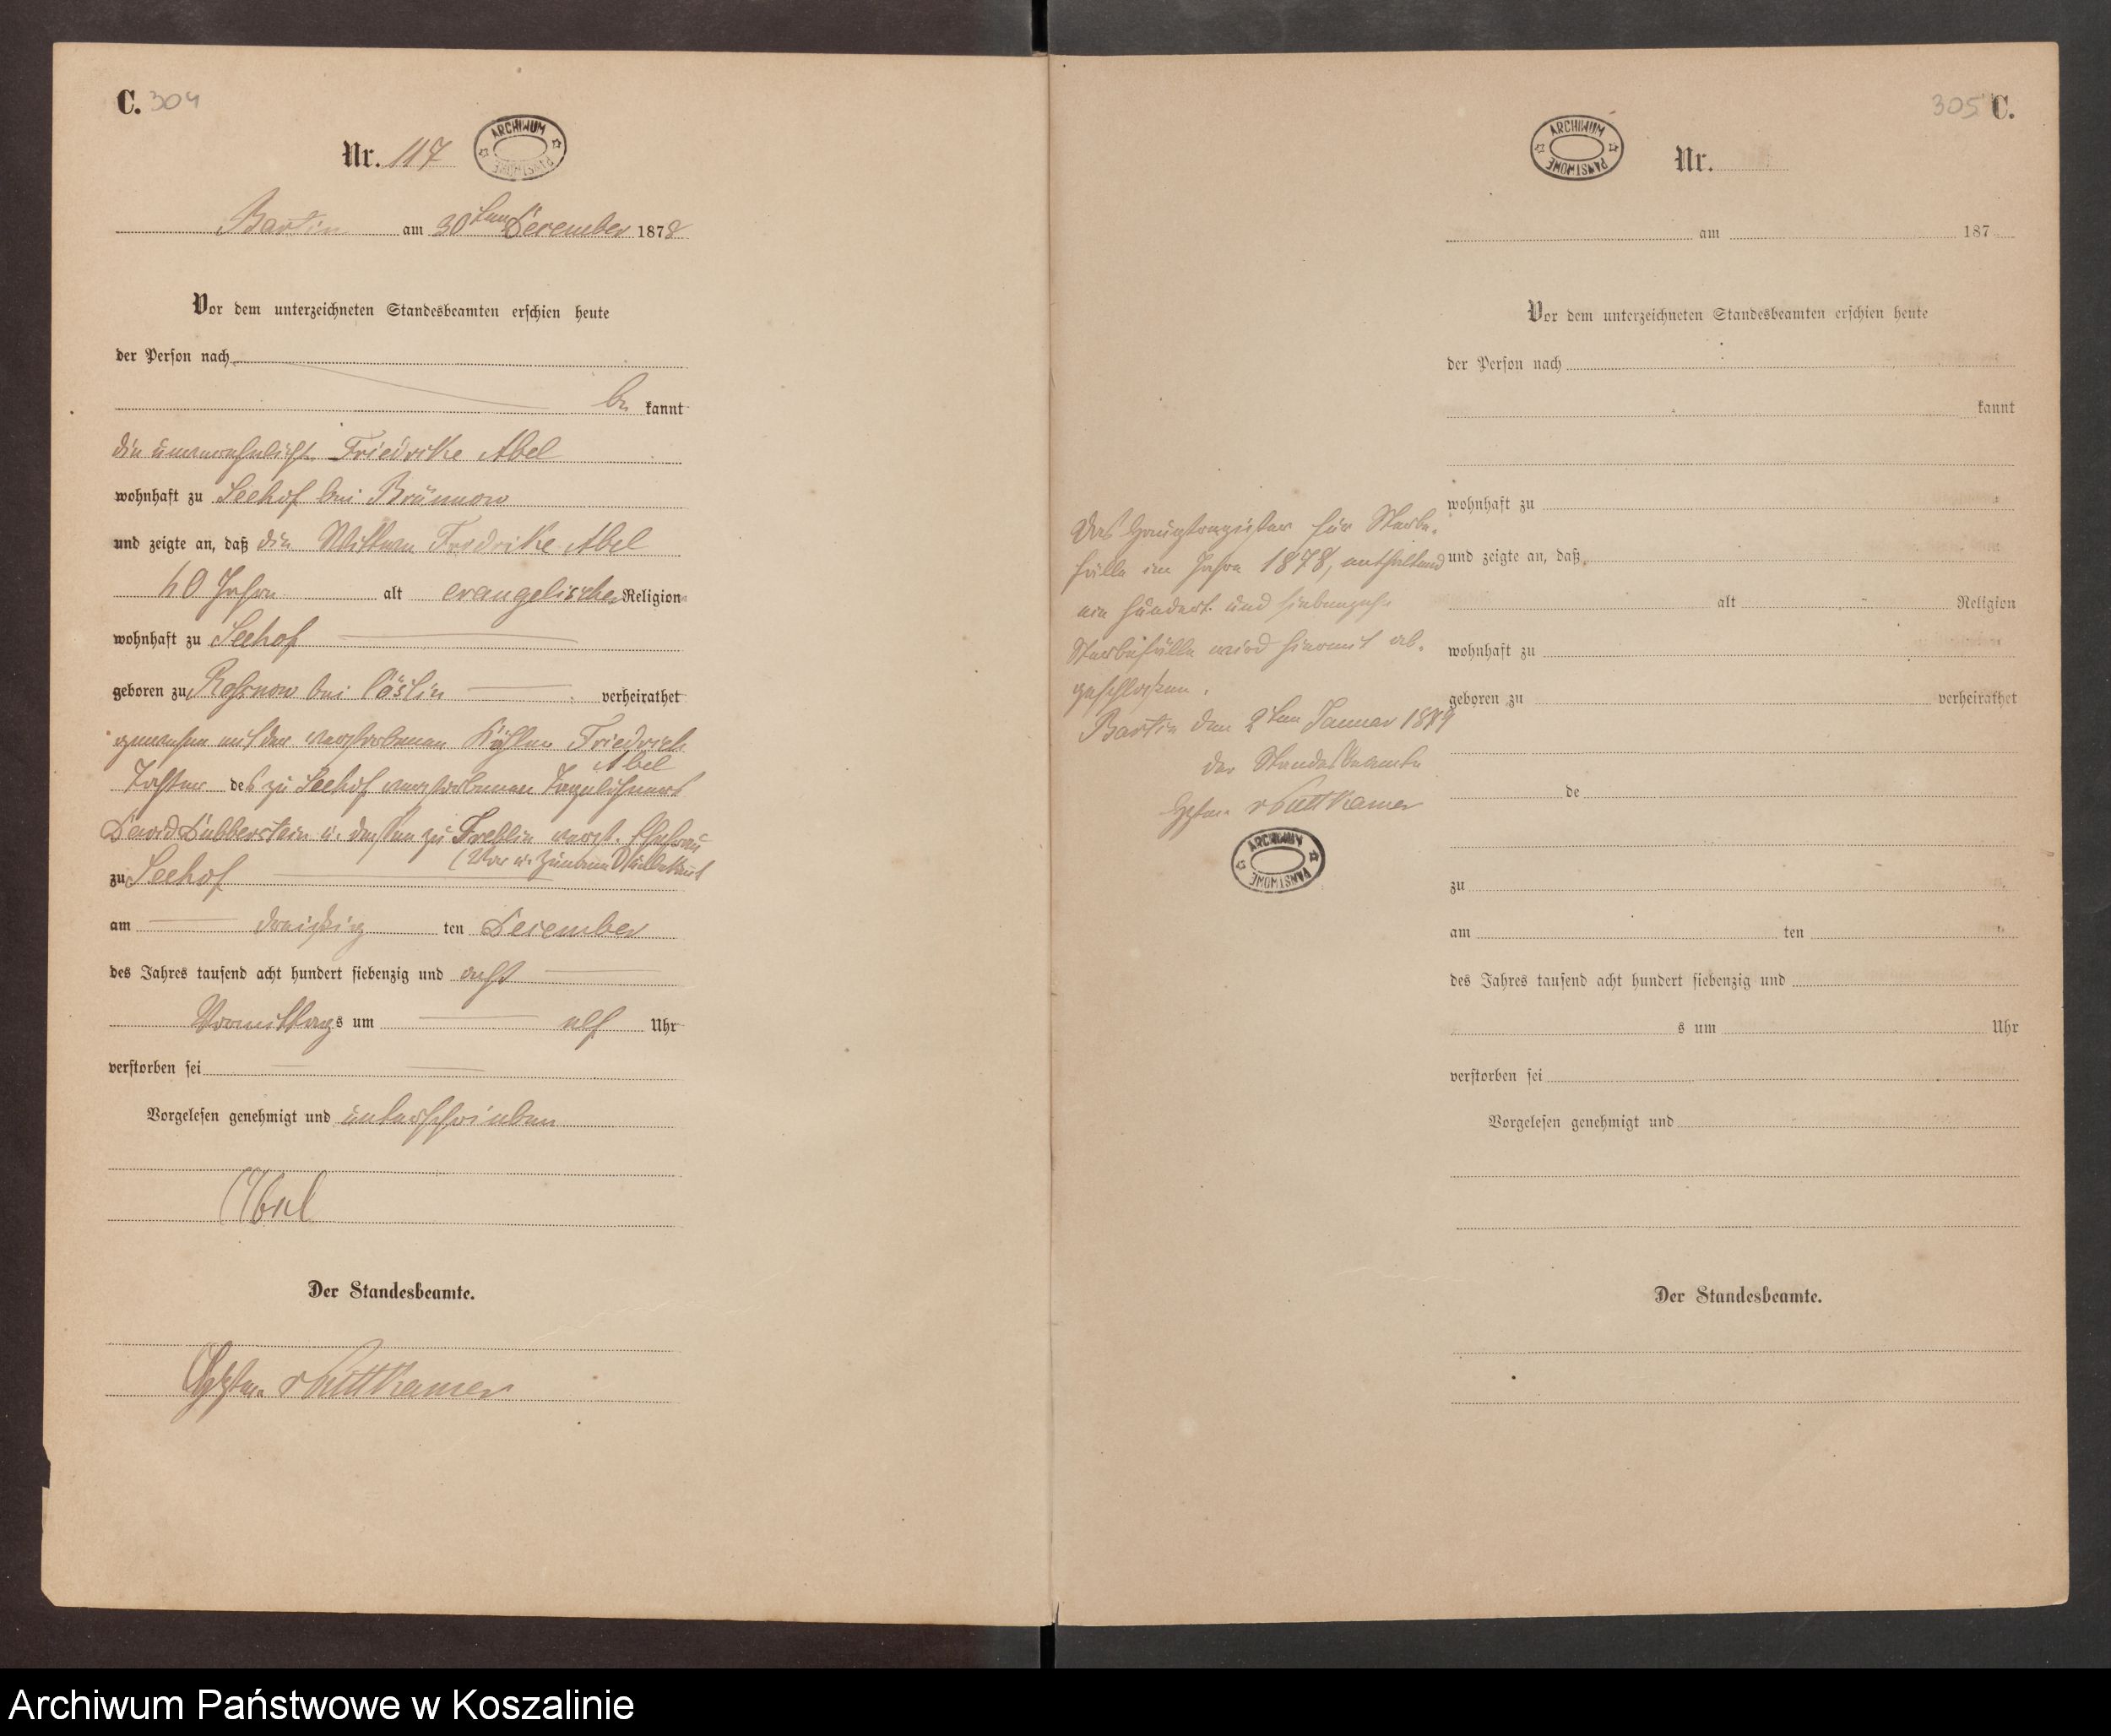 C. 304
ARCHIWUM PAŃSTWOWE
Nr. 117
Bartin am 30ten December 1878
Vor dem unterzeichneten Standesbeamten erschien heute
der Person nach
be kannt
die unverehelichte Friedrike Abel
wohnhaft zu Seehof bei Brünnow
und zeigte an, daß die Wittwe Friedrike Abel
60 Jahre alt evangelischer Religion
wohnhaft zu Seehof
geboren zu bei Cöslin verheirathet
gewesen mit dem verstorbenen Friedrich
Abel
Tochter des zu Seehof verstorbenen Tagelöhners
David Lübberstein u. dessen zu verst. Ehefrau
(Vor u. Zuname Unbekannt
zu Seehof
am dreißig ten December
des Jahres tausend acht hundert siebenzig und acht
Vormittags um elf Uhr
verstorben sei
Vorgelesen genehmigt und unterschrieben
Abel
Der Standesbeamte.
vPuttkamer
305 C.
ARCHIWUM PAŃSTWOWE
Nr.
am 187
Vor dem unterzeichneten Standesbeamten erschien heute
der Person nach
kannt
wohnhaft zu
und zeigte an, daß
alt Religion
wohnhaft zu
geboren zu verheirathet
de
zu
am ten
des Jahres tausend acht hundert siebenzig und
s um Uhr
verstorben sei
Vorgelesen genehmigt und
Der Standesbeamte.
Das Hauptregister für Sterbe-
fälle im Jahre 1878, enthaltend
ein hundert und siebenzehn
Sterbefälle wird hiermit ab-
geschlossen.
Bartin den 2ten Januar 1879
der Standesbeamte
vPuttkamer
ARCHIWUM PAŃSTWOWE
Archiwum Państwowe w Koszalinie